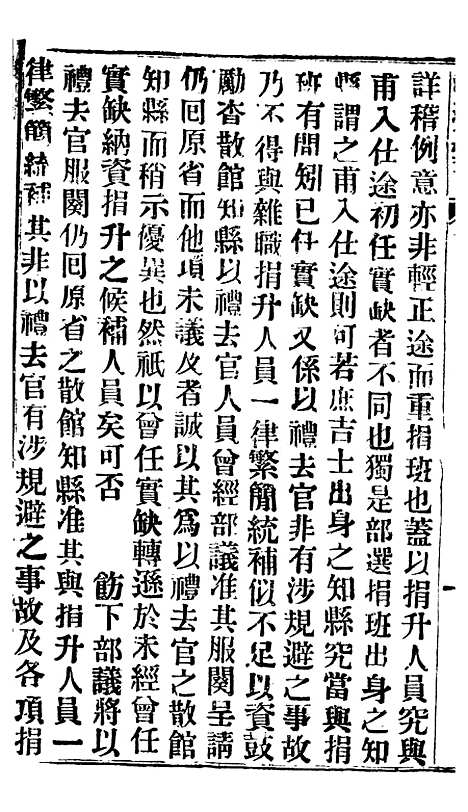 詳稽例意亦非輕正途而重捐班也蓋以捐升人員究與
甫入仕途初任實缺者不同也獨是部選捐班出身之知
縣謂之甫入仕途則可若庶吉士出身之知縣究當與捐
班有間矧已任實缺又係以禮去官非有涉規避之事故
乃不得與雜職捐升人員一律繁簡統補似不足以資鼓
勵查散館知縣以禮去官人員曾經部議准其服闋呈請
仍回原省而他項未議及者誠以其為以禮去官之散館
知縣而稍示優異也然祇以曾任實缺轉遜於未經曾任
實缺納資捐升之候補人員矣可否 飭下部議將以
禮去官服闋仍回原省之散館知縣准其與捐升人員一
律繁簡統補其非以禮去官有涉規避之事故及各項捐